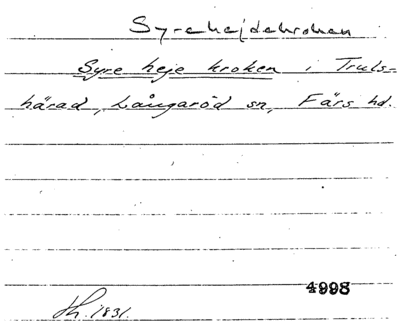 Syrehejdekroken
Syre heje kroken i Truls-
härad, Långaröd sn, Färs hd.
4998
Th. 1831.